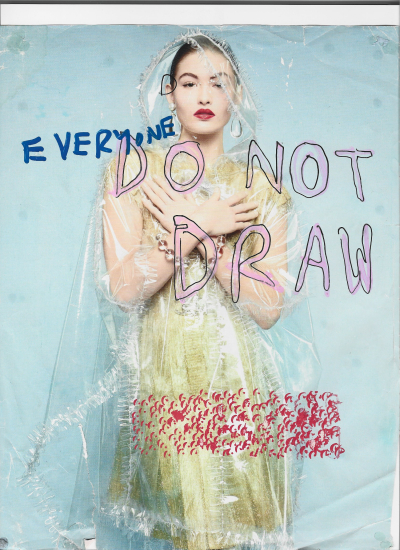 EVERYONE
DO NOT
DRAW